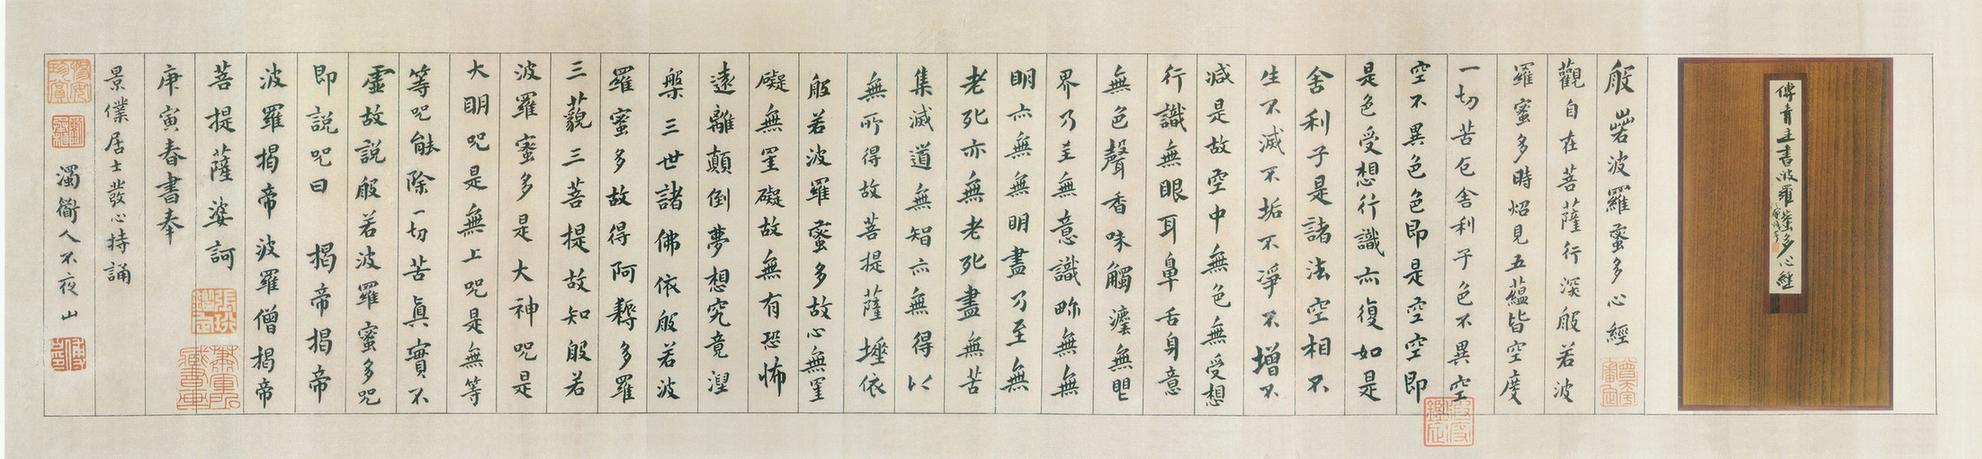 傅青主書波羅蜜多心經
般若波羅蜜多心經
觀自在菩薩行深般若波
羅蜜多時炤見五蘊皆空度
一切苦厄舍利子色不異空
空不異色色即是空空即
是色受想行識亦復如是
舍利子是諸法空相不
生不滅不垢不淨不增不
減是故空中無色無受想
行識無眼耳鼻舌身意
無色聲香味觸灋無眼
界乃至無意識界無無
明亦無無明盡乃至無
老死亦無老死盡無苦
集滅道無智亦無得以
無所得故菩提薩埵依
般若波羅蜜多故心無罣
礙無罣礙故無有恐怖
遠離顛倒夢想究竟涅
槃三世諸佛依般若波
羅蜜多故得阿耨多羅
三藐三菩提故知般若
波羅蜜多是大神咒是
大明咒是無上咒是無等
等咒能除一切苦真實不
虛故說般若波羅蜜多咒
即說咒曰 揭帝揭帝
波羅揭帝 波羅僧揭帝
菩提薩婆訶
庚寅春書奉
景僕居士發心持誦
濁衜人不夜山